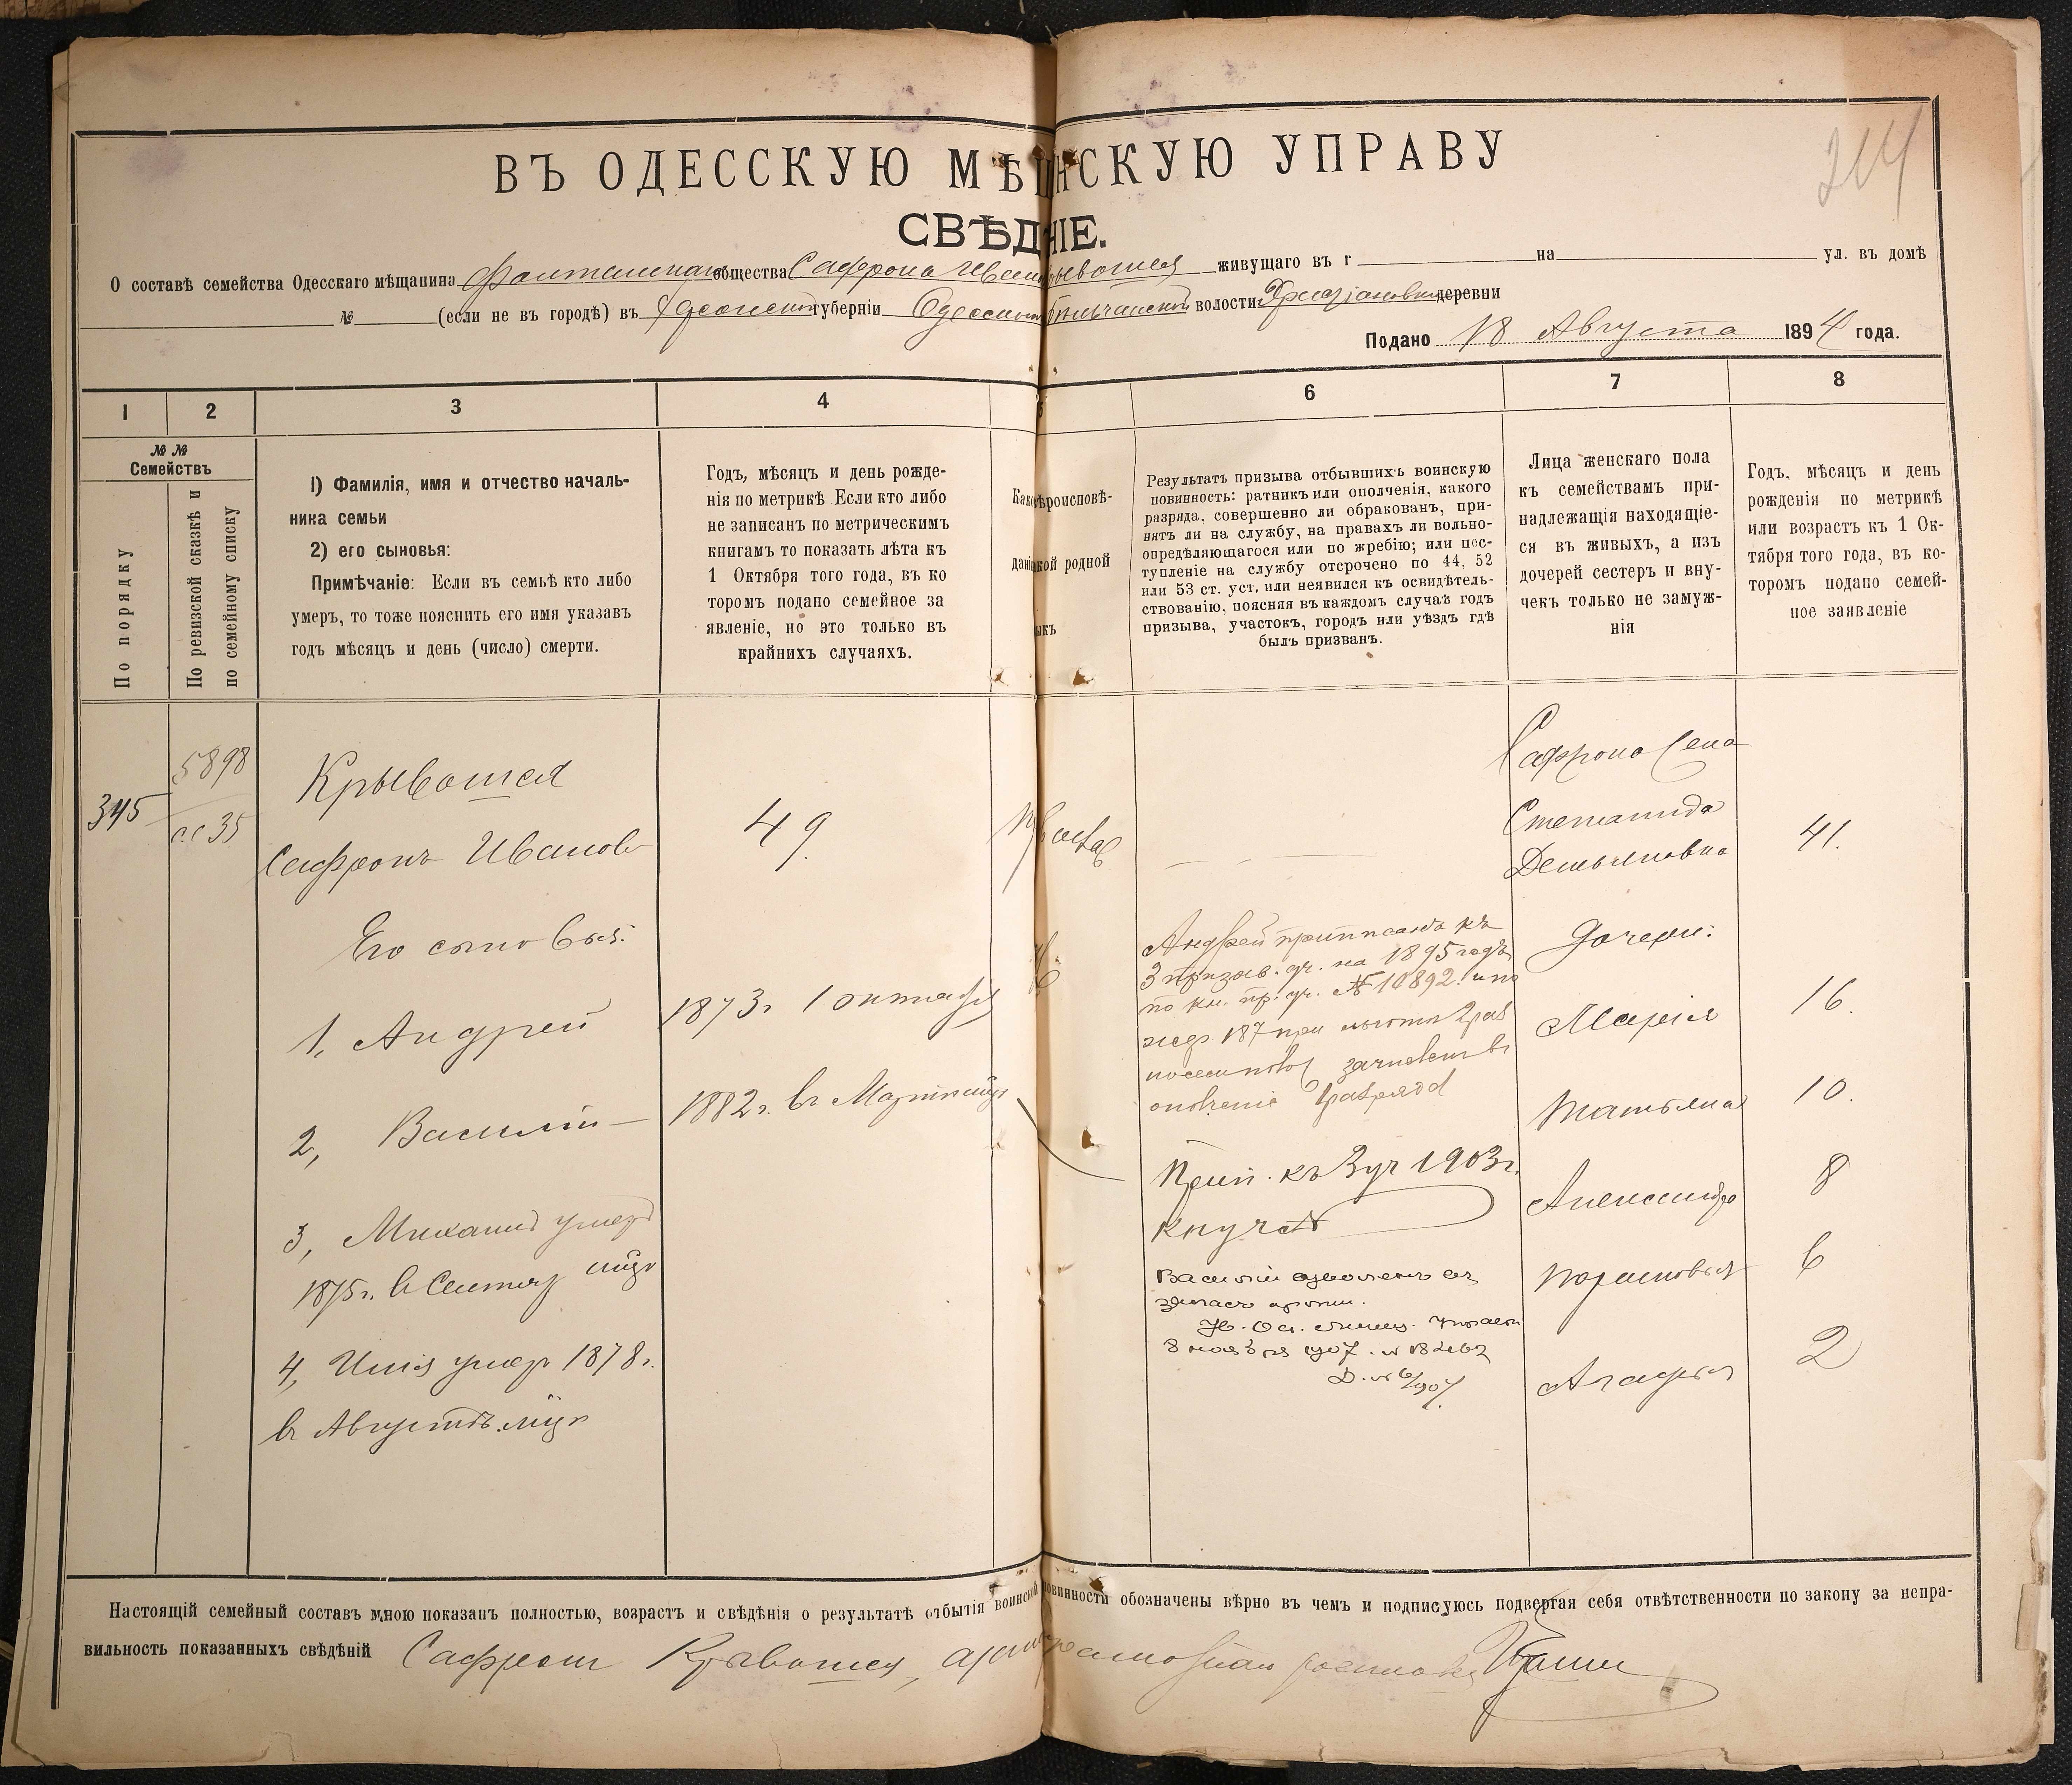 214
ВЪ ОДЕССКУЮ МѢЩ НСКУЮ УПРАВУ
СВѢД НІЕ.
О составѣ семейства Одесскаго мѣщанина Фонтанскаго общества Сафрона Иван рывошея живущаго въ г на ул. въ домѣ
№ (если не въ городѣ) въ Херсонской губерніи Одесск волости деревни
Подано 18 Августа 1894 года.
1 2 3 4 5 6 7 8
№ № Семействъ
По порядку
По ревизской сказкѣ и
по семейному списку
1) Фамилія, имя и отчество началь-
ника семьи
2) его сыновья:
Примѣчаніе: Если въ семьѣ кто либо
умеръ, то тоже пояснить его имя указавъ
годъ мѣсяцъ и день (число) смерти.
Годъ, мѣсяцъ и день рожде-
нія по метрикѣ Если кто либо
не записанъ по метрическимъ
книгамъ то показать лѣта къ
1 Октября того года, въ ко
торомъ подано семейное за
явленіе, но это только въ
крайнихъ случаяхъ.
Како ѣроисповѣ-
дані кой родной
ыкъ
Результатъ призыва отбывшихъ воинскую
повинность: ратникъ или ополченія, какого
разряда, совершенно ли обракованъ, при-
нятъ ли на службу, на правахъ ли вольно-
опредѣляющагося или по жребію; или пос-
тупленіе на службу отсрочено по 44, 52
или 53 ст. уст. или неявился къ освидѣтель-
ствованію, поясняя въ каждомъ случаѣ годъ
призыва, участокъ, городъ или уѣздъ гдѣ
былъ призванъ.
Лица женскаго пола
къ семействамъ при-
надлежащія находящіе-
ся въ живыхъ, а изъ
дочерей сестеръ и вну-
чекъ только не замуж-
нія
Годъ, мѣсяцъ и день
рожденія по метрикѣ
или возрастъ къ 1 Ок-
тября того года, въ ко-
торомъ подано семей-
ное заявленіе
345
5898
сс 35
Крывошея
Сафронъ Иванов
49.
Его сыновья:
1, Андрей
1873 г 1 октября
2, Василій
1882 г. въ Мартѣ мцѣ
3, Михаилъ умеръ
1875 г. в Сентяб мцѣ
4, Илія умер 1878 г.
въ Августѣ мцѣ
Правосл
Андрей приписанъ къ
3 призыв. уч. на 1895 годъ
по кн. пр. уч. № 10892 и по
жер. 187 при льготѣ 2 раз
зачисленъ въ
ополченіе 1 разряда
Прип. къ 3 уч 1903 г.
кн уч №
Василій уволенъ въ
запасъ арміи.
8 ноября 1907 №
Сафрона жена
Степанида
Демьяновна
41.
Дочери:
Марія
16.
Татьяна
10.
Александра
8
Парасковья
6
Агафья
2
Настоящій семейный составъ мною показанъ полностью, возрастъ и свѣдѣнія о результатѣ отбытія воинской повинности обозначены вѣрно въ чемъ и подписуюсь подвергая себя отвѣтственности по закону за непра-
вильность показанныхъ свѣдѣній Сафрон Крывошея,